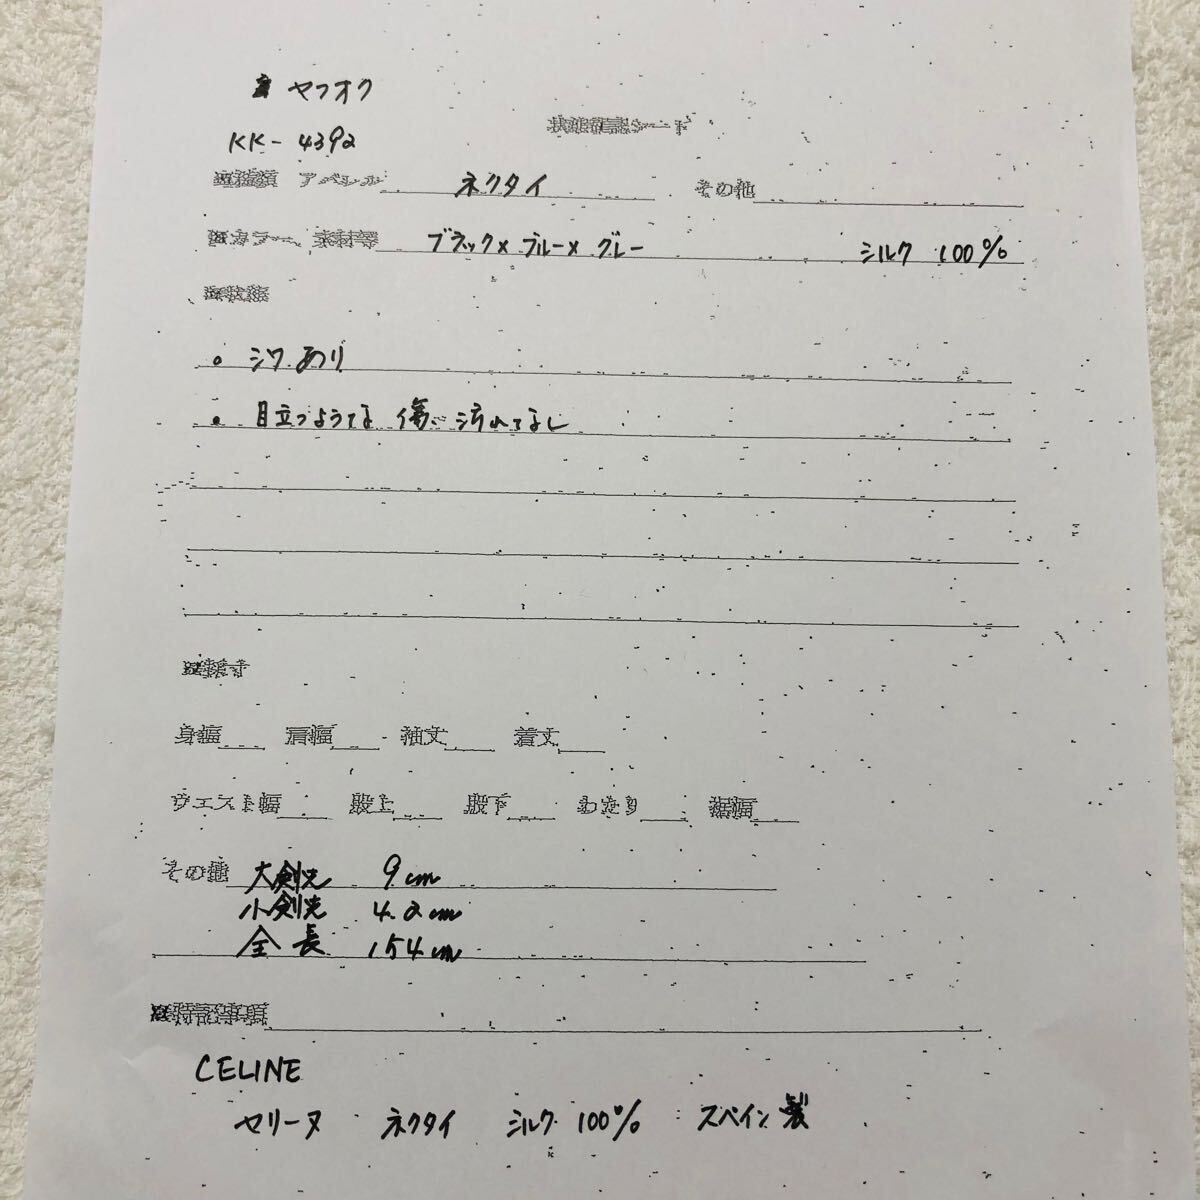 ヤフオク
KK-4392
状態確認シート
種類 アパレル ネクタイ その他
カラー、素材等 ブラック×ブルー×グレー シルク 100%
状態
・シワあり
・目立つような傷、汚れてなし
採寸
身幅 肩幅 袖丈 着丈
ウエスト幅 股上 股下 わたり 裾幅
その他 大剣先 9cm
小剣先 4.2cm
全長 154cm
特記事項
CELINE
セリーヌ ネクタイ シルク 100% スペイン製